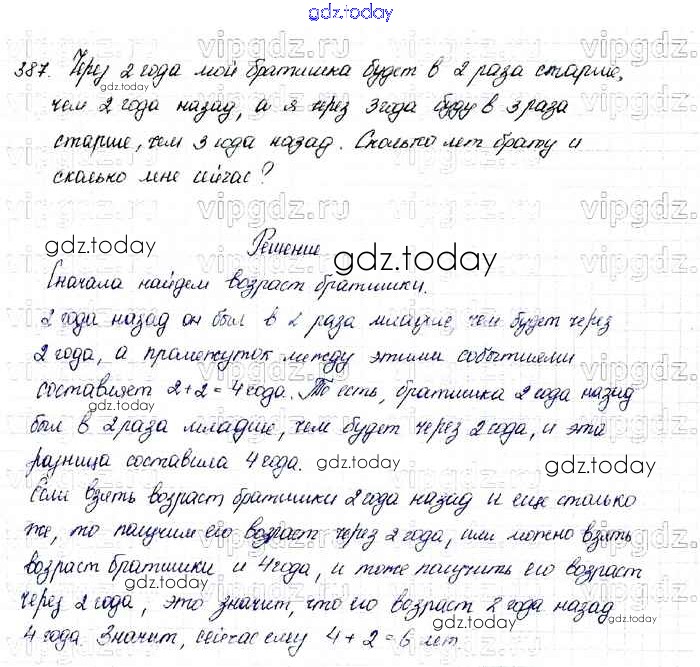 gdz.today
387. Через 2 года мой братишка будет в 2 раза старше,
чем 2 года назад, а я через 3 года буду в 3 раза
старше, чем 3 года назад. Сколько лет брату и
сколько мне сейчас?
Решение
Сначала найдем возраст братишки.
2 года назад он был в 2 раза младше, чем будет через
2 года, а промежуток между этими событиями
составляет 2+2=4 года. То есть, братишка 2 года назад
был в 2 раза младше, чем будет через 2 года, и эта
разница составила 4 года.
Если взять возраст братишки 2 года назад и еще столько
же, то получим его возраст через 2 года, или можно взять
возраст братишки и 4 года, и тоже получить его возраст
через 2 года, это значит, что его возраст 2 года назад
4 года. Значит, сейчас ему 4+2=6 лет.
vipgdz.ru
gdz.today